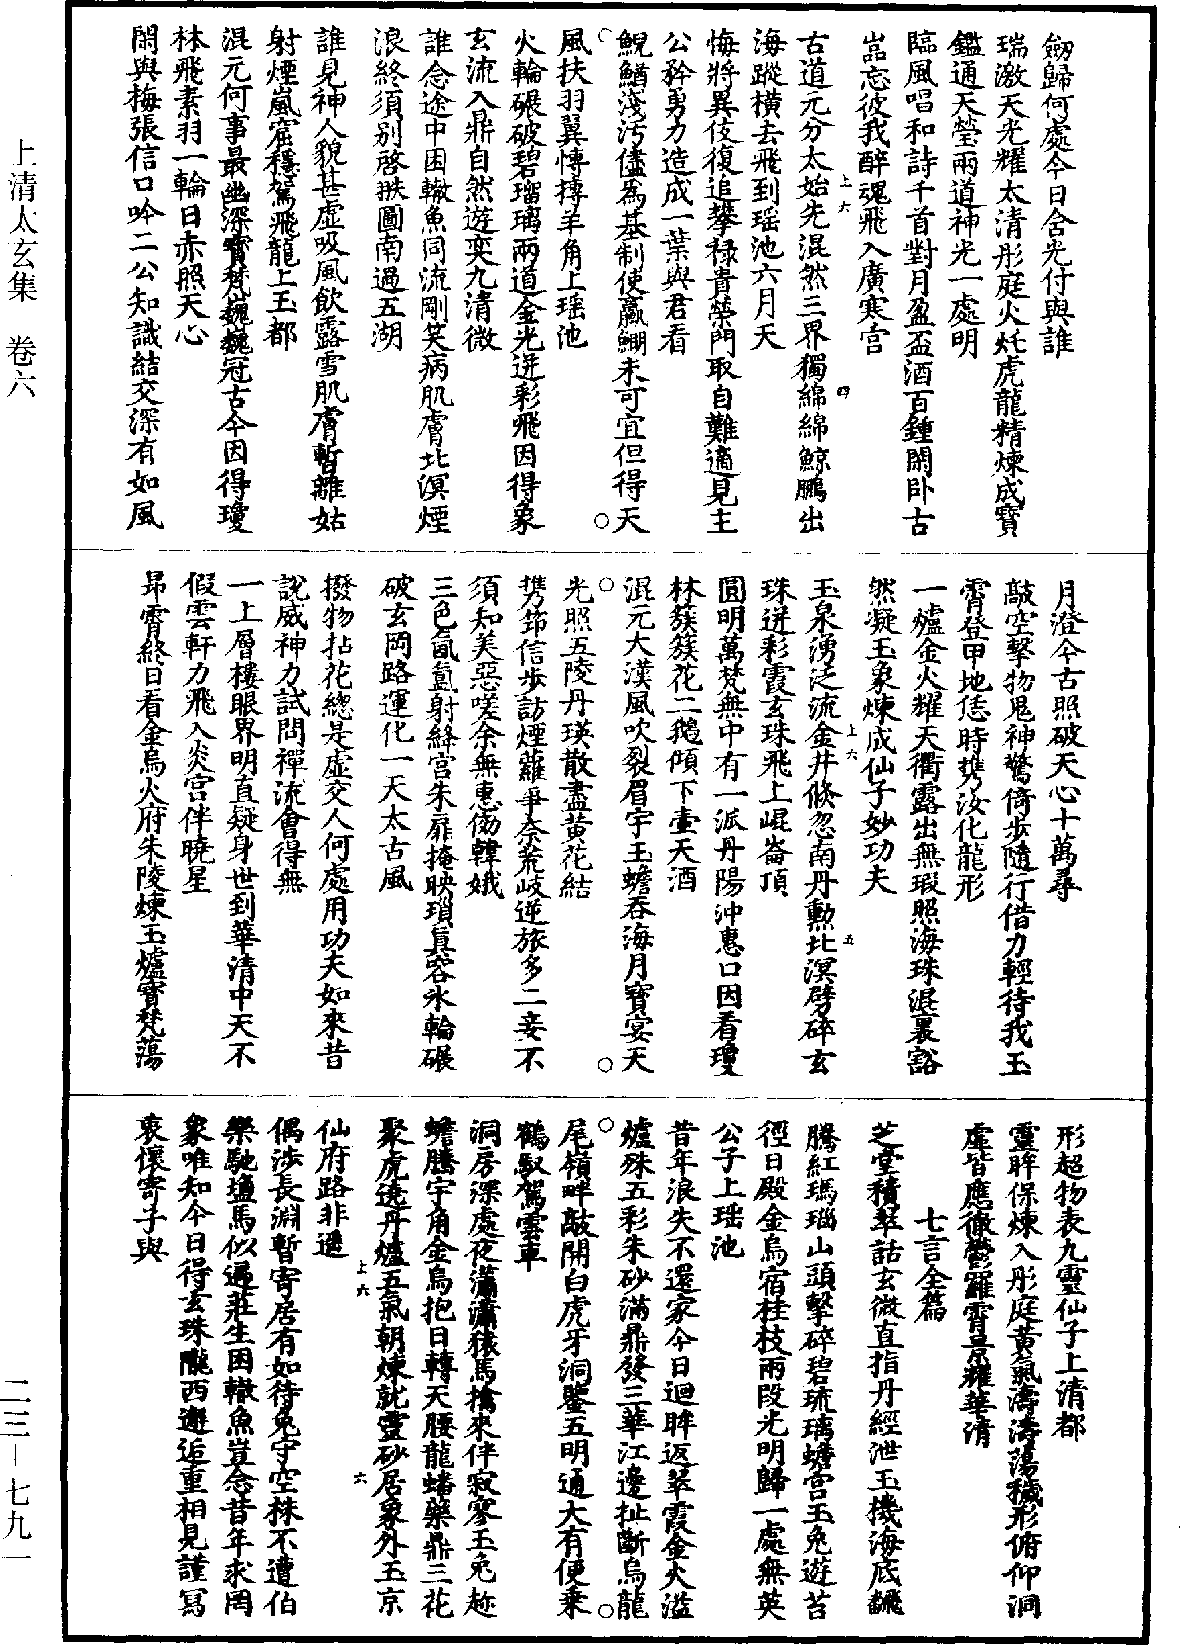 上清太玄集　卷六
劒歸何處今日含光付與誰
瑞激天光耀太清彤庭火灹虎龍精煉成寶
鑑通天瑩兩道神光一處明
臨風唱和詩千首對月盈盃酒百鍾閑卧古
嵓忘彼我醉魂飛入廣寒宫
古道元分太始先混然三界獨綿綿鯨鵬出
海蹤橫去飛到瑶池六月天
悔將異伎復追攀禄貴榮門取自難適見主
公矜勇力造成一葉與君看
鯢鰌淺汚儘為基制使贏䱟未可宜但得天
風扶羽翼慱搏羊角上瑶池
火輪碾破碧瑠璃兩道金光迸彩飛因得象
玄流入鼎自然遊奕九清微
誰念途中困轍魚同流剛笑病肌膚北溟煙
浪終須别啓㧞圖南過五湖
誰見神人貌甚虚吸風飲露雪肌膚暫離姑
射煙嵐窟穩駕飛龍上玉都
混元何事最幽深寶梵巍巍冠古今因得瓊
林飛素羽一輪日赤照天心
閑與梅張信口吟二公知識結交深有如風
月澄今古照破天心十萬尋
敲空擊物鬼神驚倚步隨行借力輕待我玉
霄登甲地恁時携汝化龍形
一爐金火耀天衢露出無瑕照海珠混裏豁
然凝玉象煉成仙子妙功夫
玉泉湧泛流金井倏忽南丹勳北溟劈碎玄
珠迸彩霞玄珠飛上崐崙頂
圓明萬梵無中有一派丹陽沖惠口因看瓊
林簇簇花二鵝傾下壷天酒
混元大漢風吹裂眉宇玉蟾吞海月寶宴天
光照五陵丹瑛散盡黄花結
携筇信步訪煙蘿爭奈荒岐逆旅多二妾不
須知美惡嗟余無惠俲韓娥
三色氤氲射絳宫朱扉掩映瑣真容氷輪碾
破玄岡路運化一天太古風
撥物拈花總是虚交人何處用功夫如來昔
說威神力試問禪流會得無
一上層樓眼界明直疑身世到華清中天不
假雲軒力飛入炎宫伴曉星
昻霄終日看金烏火府朱陵煉玉爐寶梵蕩
形超物表九靈仙子上清都
靈眸保煉入彤庭黄氣濤濤蕩穢形俯仰洞
虚皆應徹鬱羅霄景耀華清
七言全篇
芝堂積翠話玄微直指丹經泄玉機海底飜
騰紅瑪瑙山頭擊碎碧琉璃蟾宫玉兔遊苔
徑日殿金烏宿桂枝兩段光明歸一處無英
公子上瑶池
昔年浪失不還家今日迴眸返翠霞金火溢
爐殊五彩朱砂滿鼎發三華江邊扯斷烏龍
尾嶺畔敲開白虎牙洞鑒五明通大有便乗
鶴馭駕雲車
洞房深處夜瀟瀟猿馬擒來伴寂寥玉兔趂
蟾騰宇角金烏抱日轉天腰龍蟠藥鼎三花
聚虎遶丹爐五氣朝煉就靈砂居象外玉京
仙府路非遥
偶涉長淵暫寄居有如待兔守空株不遭伯
樂馳鹽馬似遇莊生困轍魚豈念昔年求罔
象唯知今日得玄珠隴西邂逅重相見謹冩
衷懷寄子與
二三－七九一